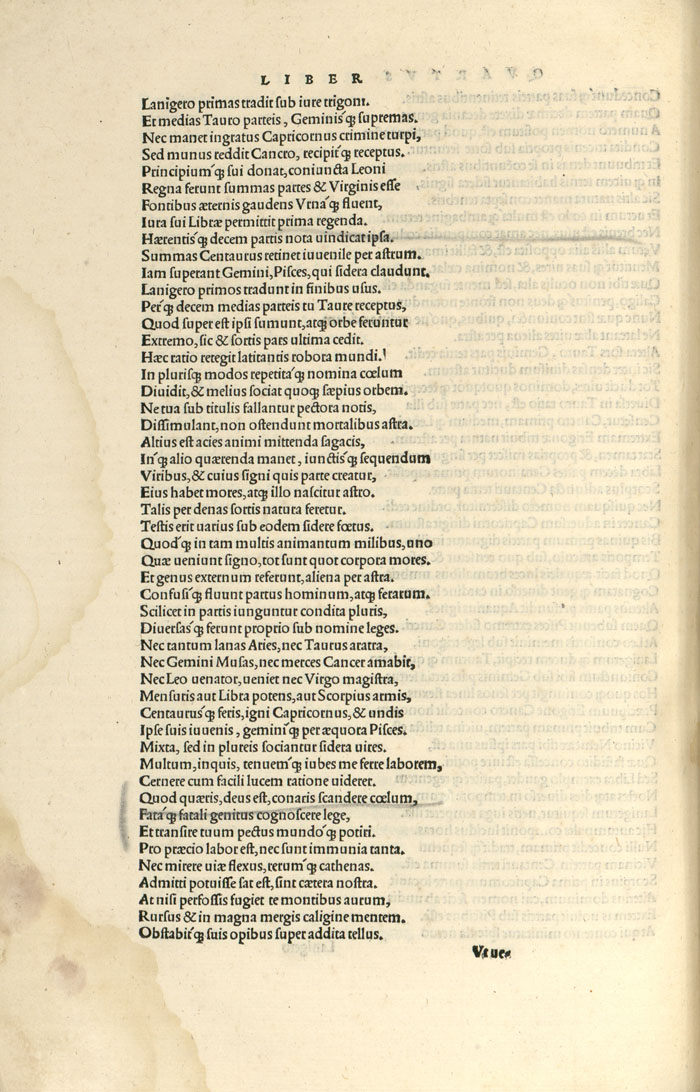 LIBER
Lanigero primas tradit sub iure trigoni.
Et medias Tauro parteis, Geminisq́; supremas.
Nec manet ingratus Capricornus crimine turpi,
Sed munus reddit Cancro, recipitq́; receptus.
Principiumq́; sui donat, coniuncta Leoni
Regna ferunt summas partes & Virginis esse
Fontibus æternis gaudens Vrnaq́; fluent,
Iura sui Libræ permittit prima regenda.
Hærentisq́; decem partis nota uindicat ipsa.
Summas Centaurus retinet iuuenile per astrum.
Iam superant Gemini, Pisces, qui sidera claudunt.
Lanigero primos tradunt in finibus usus.
Perq́; decem medias parteis tu Taure receptus,
Quod super est ipsi sumunt, atq; orbe feruntur
Extremo, sic & sortis pars ultima cedit.
Hæc ratio retegit latitantis robora mundi.
In plurisq́; modos repetitaq́; nomina cœlum
Diuidit, & melius sociat quoq; sæpius orbem.
Ne tua sub titulis fallantur pectora notis,
Dissimulant, non ostendunt mortalibus astra.
Altius est acies animi mittenda sagacis,
Inq́; alio quærenda manet, iunctisq́; sequendum
Viribus, & cuius signi quis parte creatur,
Eius habet mores, atq; illo nascitur astro.
Talis per denas sortis natura feretur.
Testis erit uarius sub eodem sidere fœtus.
Quodq́; in tam multis animantum milibus, uno
Quæ ueniunt signo, tot sunt quot corpora mores.
Et genus externum referunt, aliena per astra.
Confusiq́; fluunt partus hominum, atq; ferarum.
Scilicet in partis iunguntur condita pluris,
Diuersasq́; ferunt proprio sub nomine leges.
Nec tantum lanas Aries, nec Taurus aratra,
Nec Gemini Musas, nec merces Cancer amabit,
Nec Leo uenator, ueniet nec Virgo magistra,
Mensuris aut Libra potens, aut Scorpius armis,
Centaurusq́; feris, igni Capricornus, & undis
Ipse suis iuuenis, geminiq́; per æquora Pisces.
Mixta, sed in plureis sociantur sidera uires.
Multum, inquis, tenuemq́; iubes me ferre laborem,
Cernere cum facili lucem ratione uiderer.
Quod quæris, deus est, conaris scandere cœlum,
Fataq́; fatali genitus cognoscere lege,
Et transire tuum pectus mundoq́; potiri.
Pro præcio labor est, nec sunt immunia tanta.
Nec mirere uiæ flexus, rerumq́; cathenas.
Admitti potuisse sat est, sint cætera nostra.
At nisi perfossis fugiet te montibus aurum,
Rursus & in magna mergis caligine mentem.
Obstabitq́; suis opibus super addita tellus.
Vtue